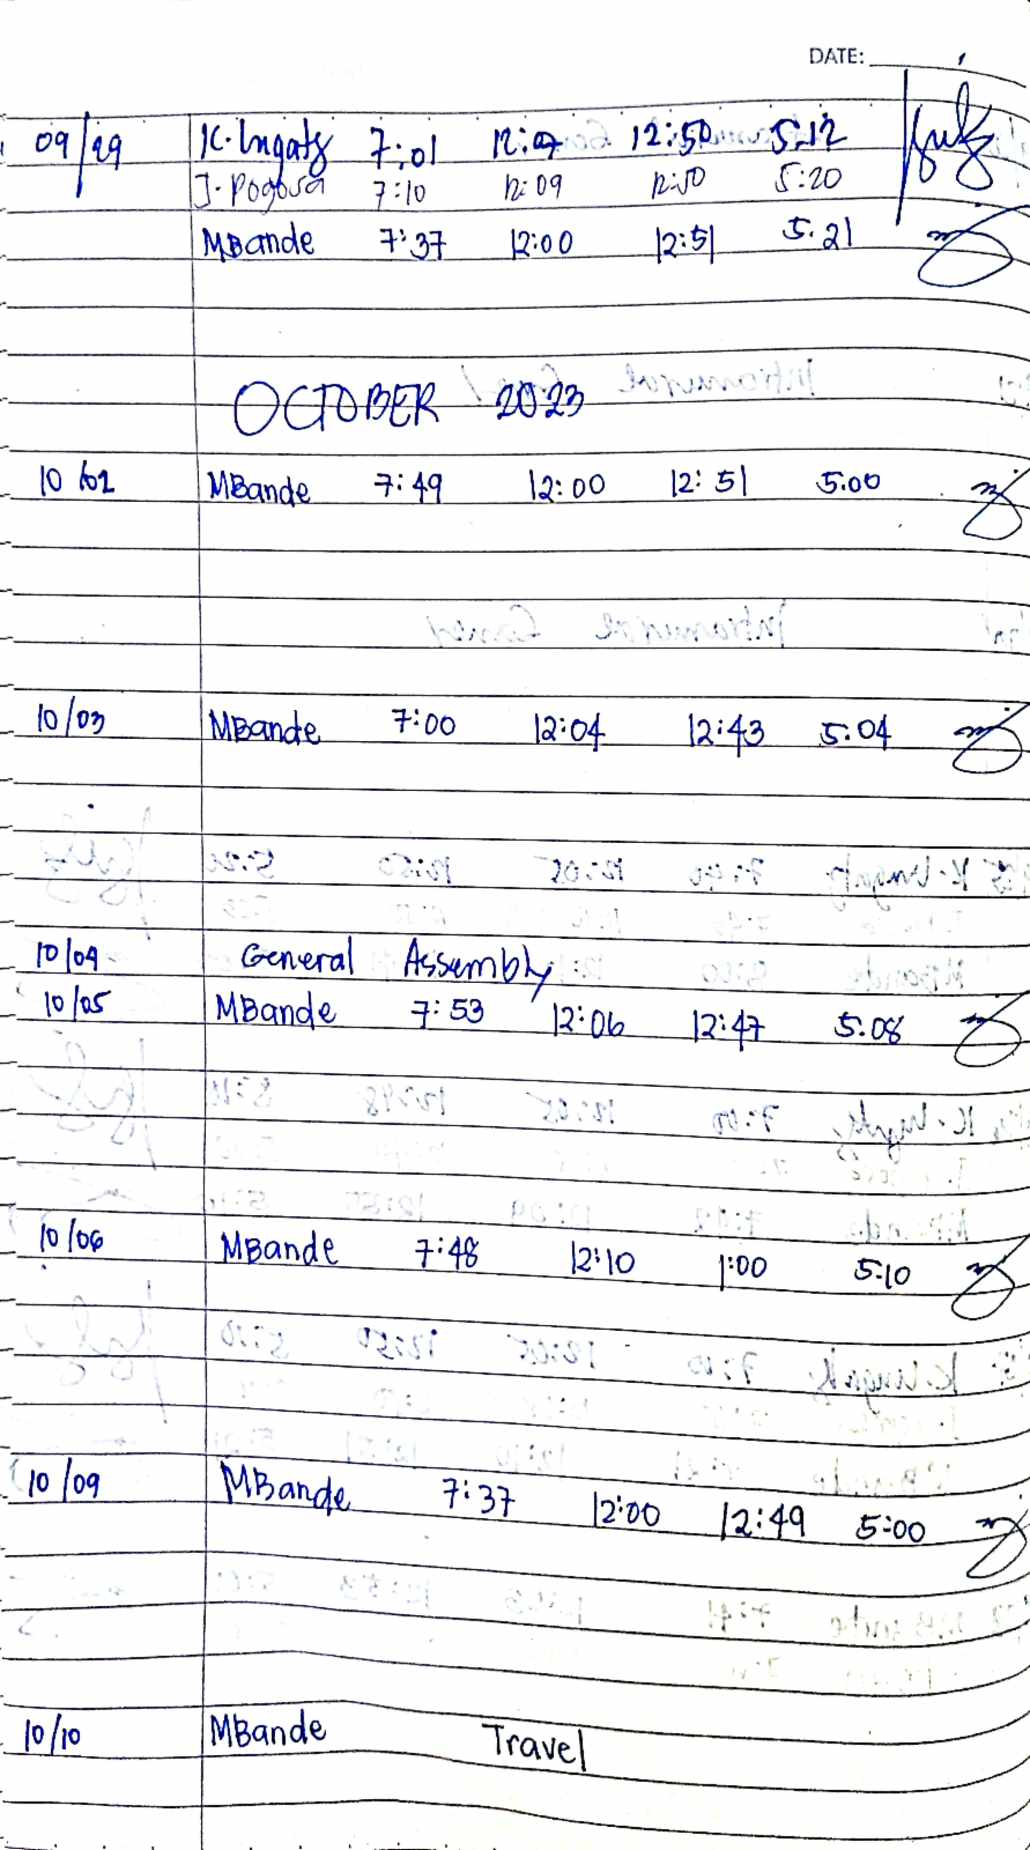 DATE:
09/29 K. Ingaty 7:01 12:07 12:50 5:12
J. Pogosa 7:10 12:09 12:50 5:20
MBande 7:37 12:00 12:51 5:21
OCTOBER 2023
10/02 MBande 7:49 12:00 12:51 5:00
10/03 MBande 7:00 12:04 12:43 5:04
10/04 General Assembly
10/05 MBande 7:53 12:06 12:47 5:08
10/06 MBande 7:48 12:10 1:00 5:10
10/09 MBande 7:37 12:00 12:49 5:00
10/10 MBande Travel